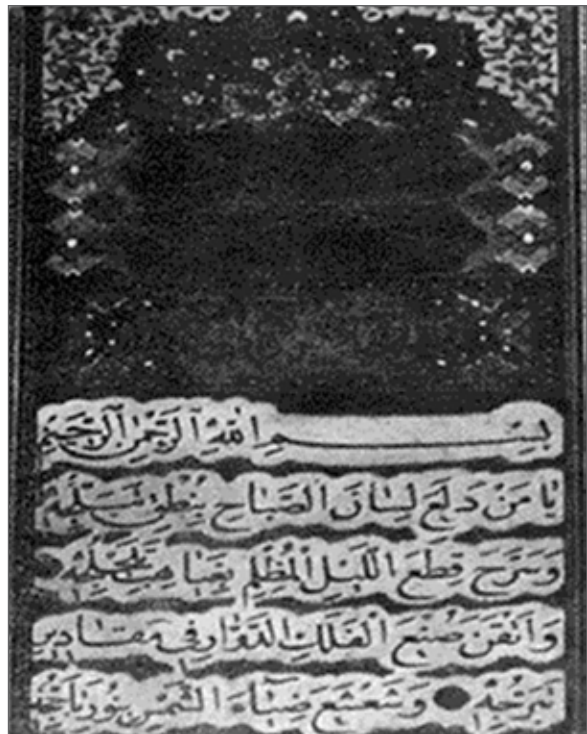 بِسْمِ اللهِ الرَّحْمٰنِ الرَّحِيمِ
يَا مَنْ دَلَعَ لِسَانَ الصَّبَاحِ بِنُطْقِ تَبَلُّجِهِ
وَسَرَّحَ قِطَعَ اللَّيْلِ الْمُظْلِمِ بِغَيَاهِبِ تَلَجْلُجِهِ
وَاَتْقَنَ صُنْعَ الْفَلَكِ الدَّوَّارِ فِي مَقَادِيرِ
تَبَرُّجِهِ وَشَعْشَعَ ضِيَاءَ الشَّمْسِ بِنُورِ تَاَجُّجِهِ